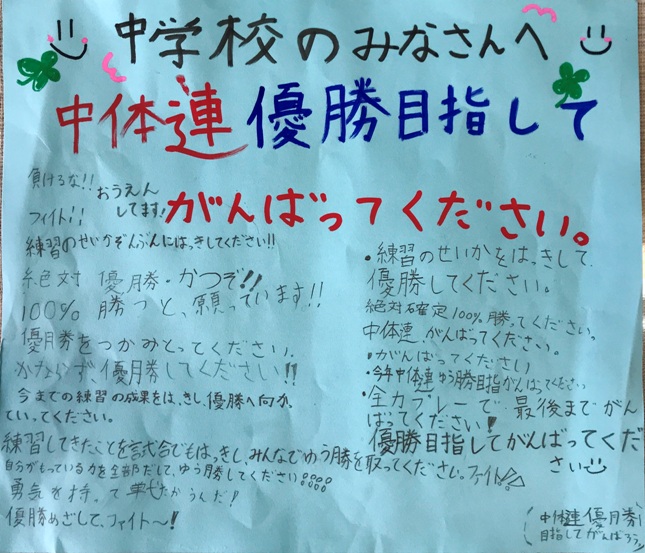 中学校のみなさんへ
中体連優勝目指して
がんばってください。
負けるな!!
おうえん
してます!
フィイト!!
練習のせいかぞんぶんにはっきしてください!!
絶対 優勝・かつぞ!!
100% 勝つと、願っています!!
優勝をつかみとってください。
かならず、優勝してください!!
今までの練習の成果をはっきし、優勝へ向か
っていってください。
練習してきたことを試合でもはっきし、みんなでゆう勝を取ってください。ファイト!
自分がもっている力を全部だして、ゆう勝してください!!!!
勇気を持って
たたかうんだ!
優勝めざして、ファイト〜!
・練習のせいかをはっきして、
優勝してください。
絶対確定100%勝ってください。
中体連、がんばってください。
・がんばってください
・今年中体連ゆう勝目指がんばってください
・全力プレーで、最後までがん
ばってください!
優勝目指してがんばってくだ
さい
中体連優勝
目指してがんばろう!!